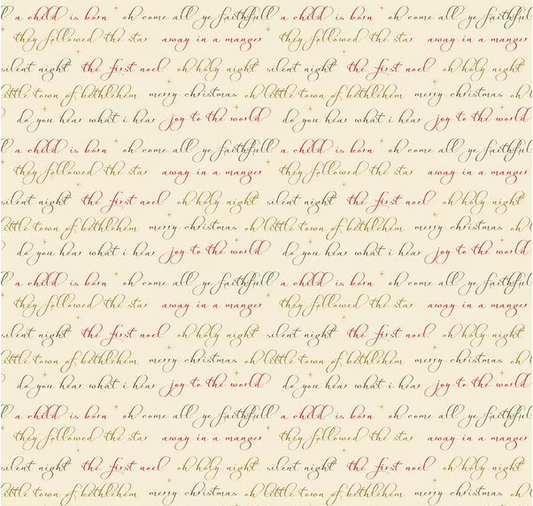 l a child is born oh come all ye faithfull a child is born oh come all ye faithfull
they followed the star away in a manger they followed the star away in a manger
silent night the first noel oh holy night silent night the first noel oh holy night
little town of bethlehem merry christmas oh little town of bethlehem merry christmas oh l
do you hear what i hear joy to the world do you hear what i hear joy to the world
l a child is born oh come all ye faithfull a child is born oh come all ye faithfull
they followed the star away in a manger they followed the star away in a manger
silent night the first noel oh holy night silent night the first noel oh holy night
little town of bethlehem merry christmas oh little town of bethlehem merry christmas oh l
do you hear what i hear joy to the world do you hear what i hear joy to the world
l a child is born oh come all ye faithfull a child is born oh come all ye faithfull
they followed the star away in a manger they followed the star away in a manger
silent night the first noel oh holy night silent night the first noel oh holy night
little town of bethlehem merry christmas oh little town of bethlehem merry christmas oh l
do you hear what i hear joy to the world do you hear what i hear joy to the world
l a child is born oh come all ye faithfull a child is born oh come all ye faithfull
they followed the star away in a manger they followed the star away in a manger
silent night the first noel oh holy night silent night the first noel oh holy night
little town of bethlehem merry christmas oh little town of bethlehem merry christmas oh l